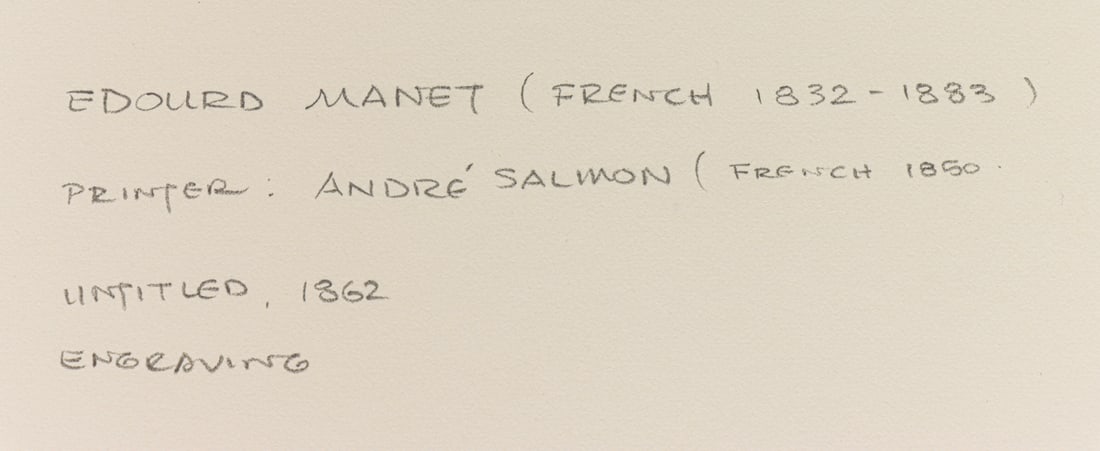 EDOURD MANET ( FRENCH 1832 - 1883 )
PRINTER : ANDRÉ SALMON ( FRENCH 1850
UNTITLED, 1862
ENGRAVING